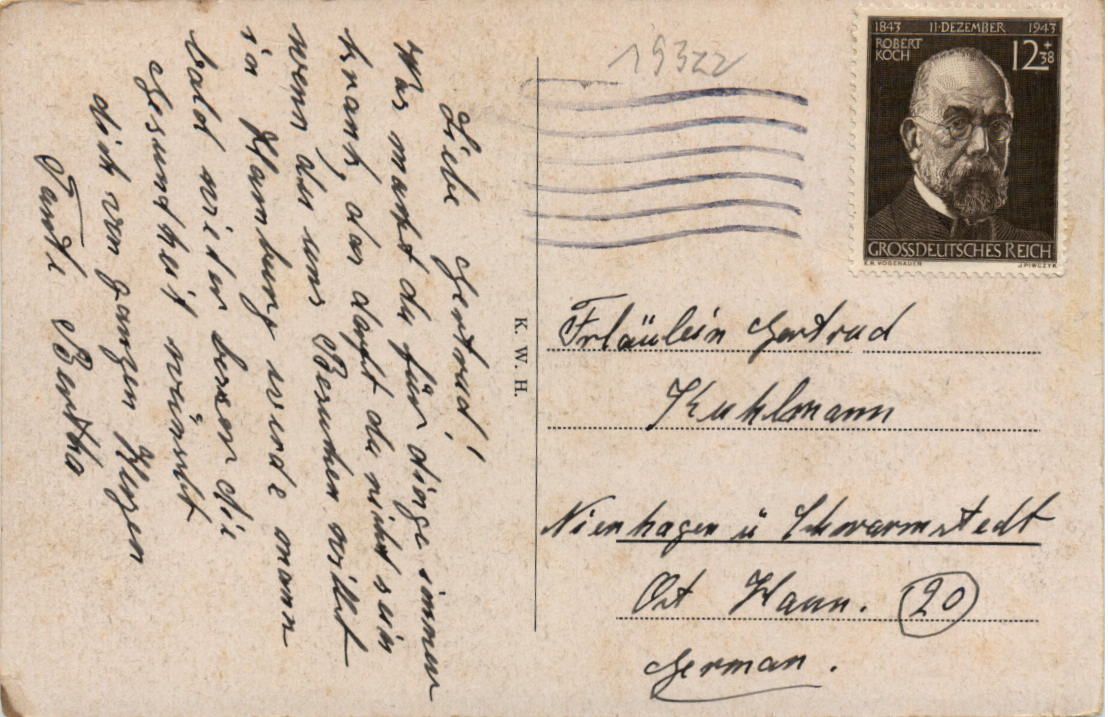 Liebe Gertrud!
Was machst du für dinge immer
krank, du darfst du nicht sein
wenn du uns Besuchen willst
in Hamburg wird mann
bald wider besser die
Gesundheit wünscht
dir von ganzen Herzen
Tante Bertha
19322
1843 11·DEZEMBER 1943
ROBERT
KOCH
12+38
GROSSDEUTSCHES REICH
E.R.VOGENAUER J.PIWCZYK
K. W. H.
Fräulein Gertrud
Kuhlmann
Nienhagen ü Schwarmstedt
Ost Hann. 20
German.